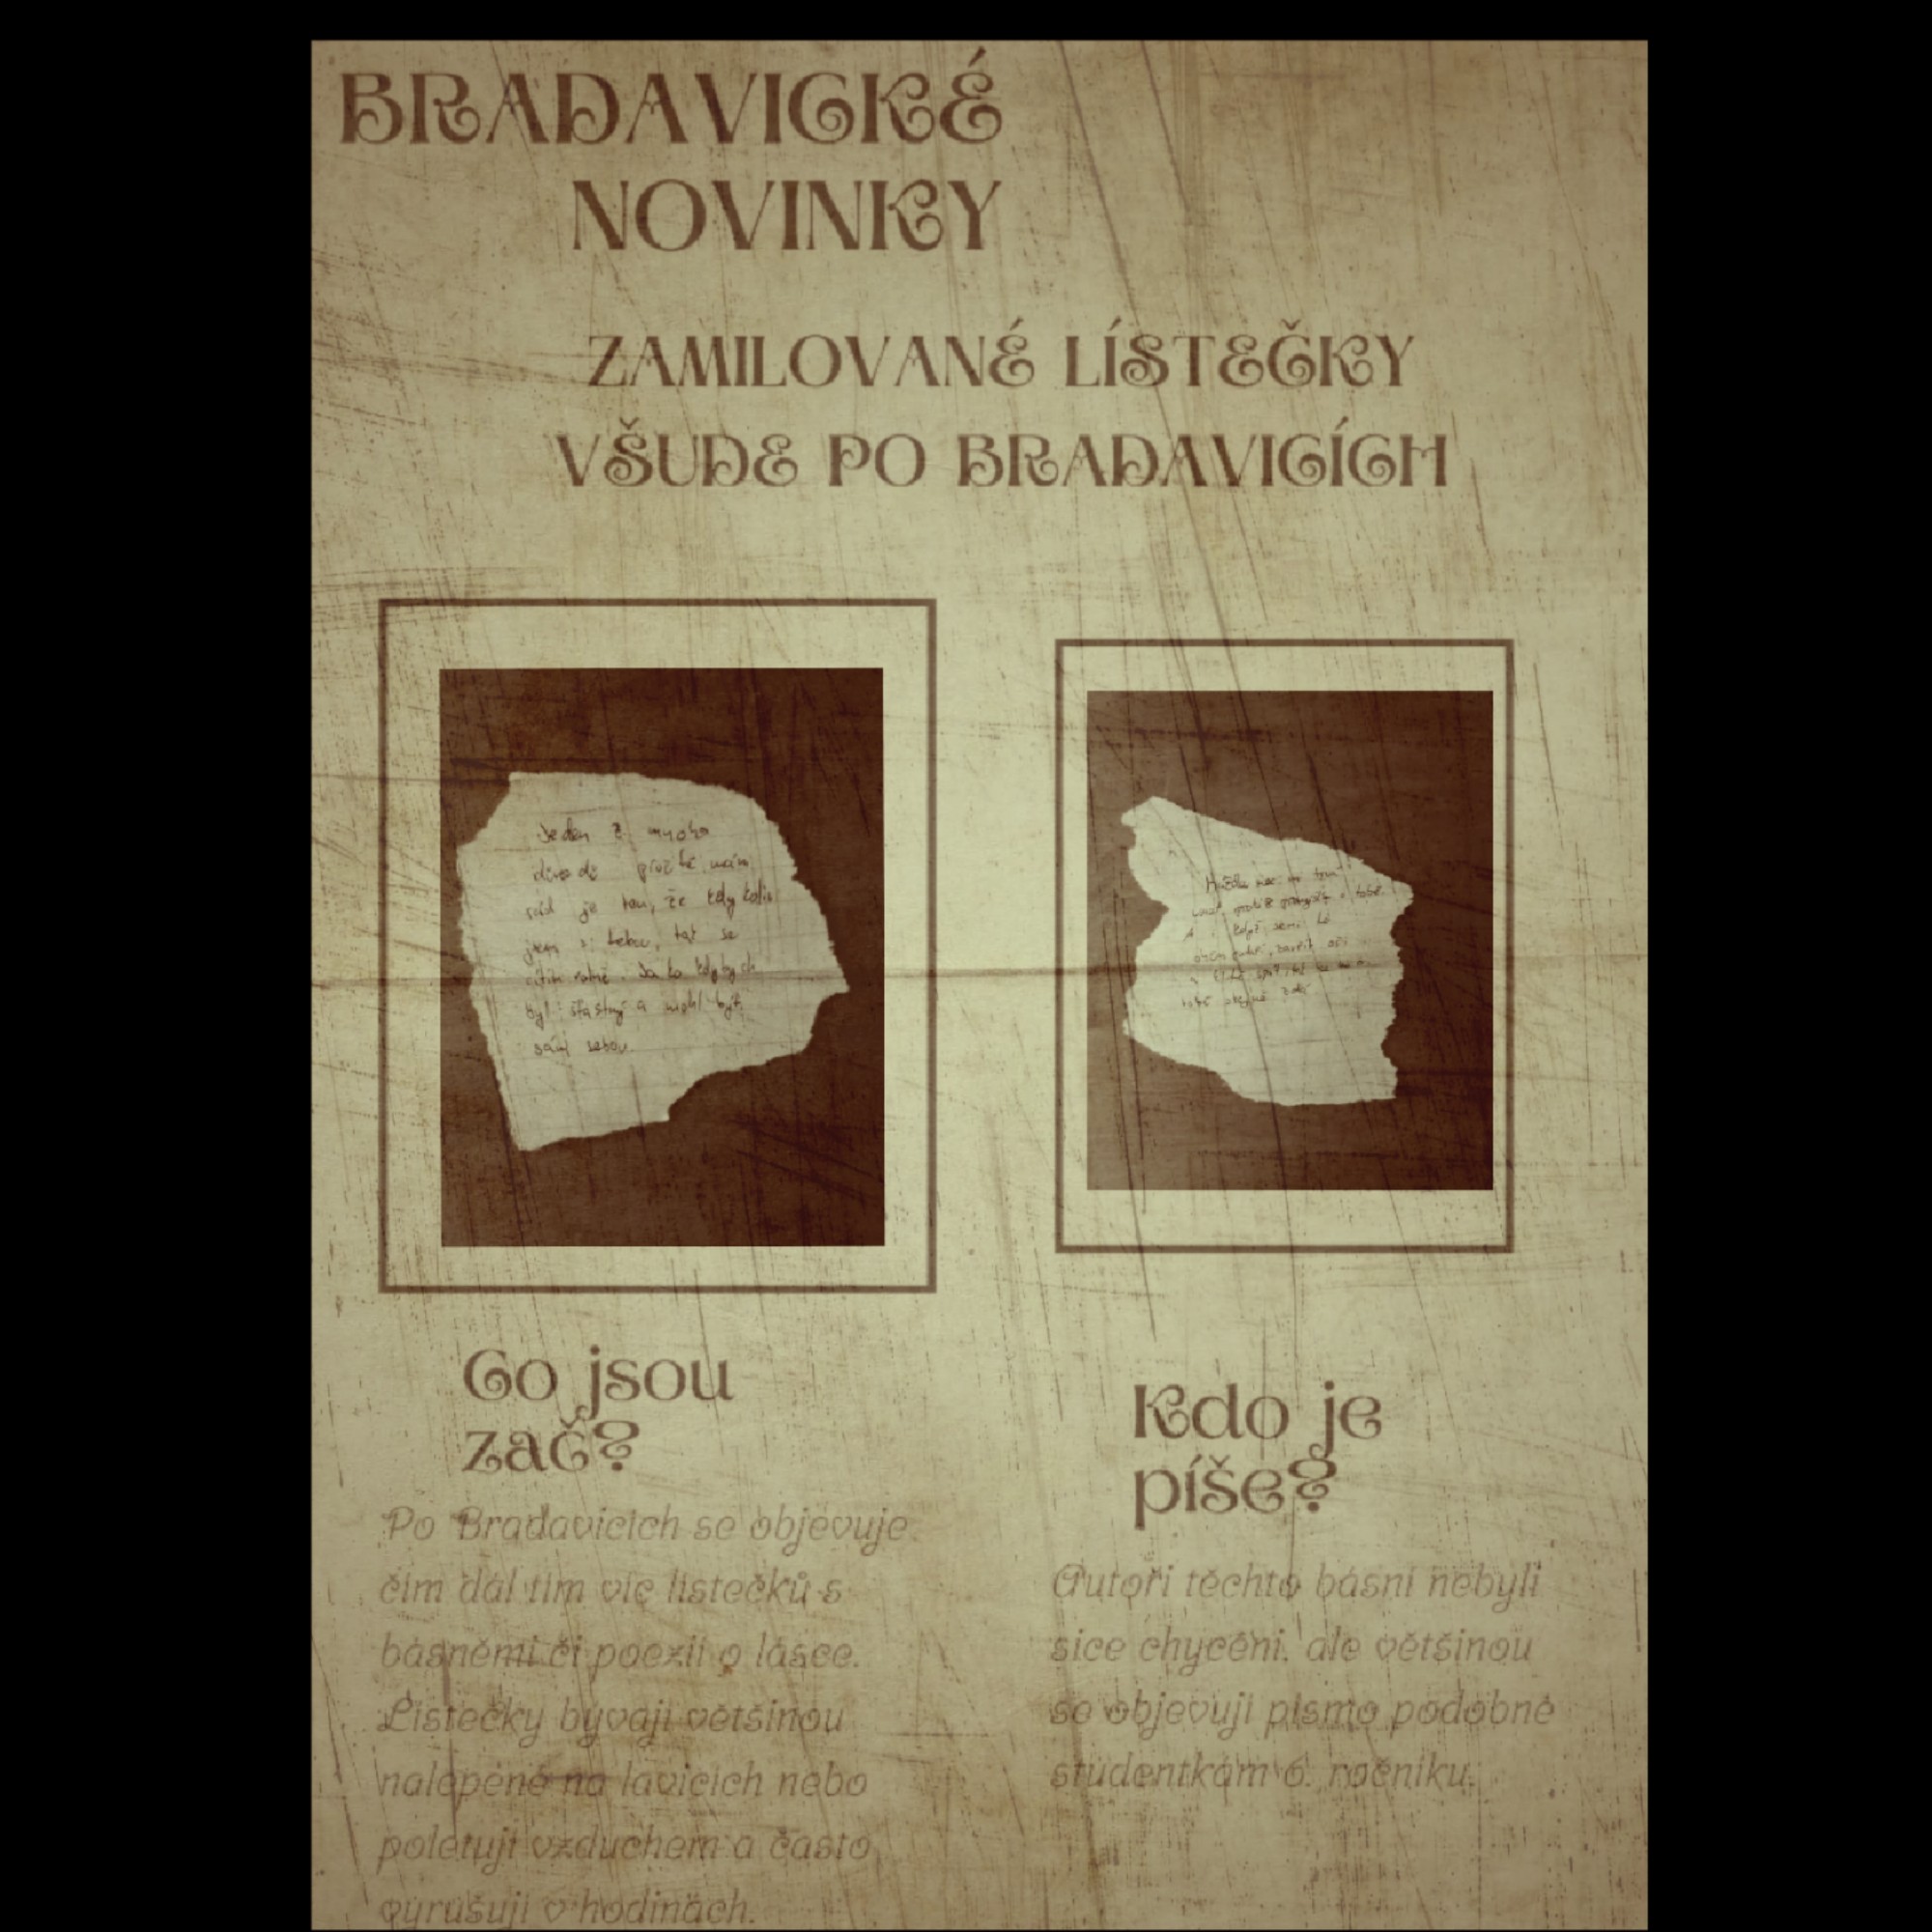 BRADAVICKÉ
NOVINKY
ZAMILOVANÉ LÍSTEČKY
VŠUDE PO BRADAVICÍCH
Jeden z mnoha
důvodů proč tě mám
rád je ten, že kdykoliv
jsem s tebou, tak se
cítím volně. Jako kdybych
byl šťastný a mohl být
sám sebou.
A i když jsem
oči
Co jsou
zač?
Po Bradavicích se objevuje
čím dál tím víc lístečků s
básněmi či poezií o lásce.
Lístečky bývají většinou
nalepené na lavicích nebo
poletují vzduchem a často
vyrušují v hodinách.
Kdo je
píše?
Autoři těchto básní nebyli
sice chyceni, ale většinou
se objevují písmo podobné
studentkám 6. ročníku.